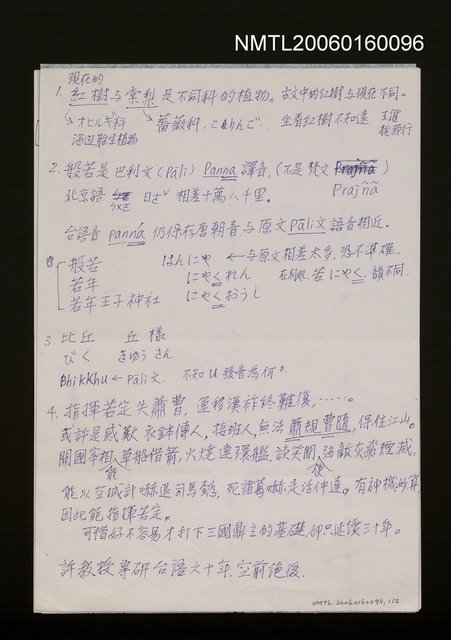 NMTL20060160096
現在的
1. 紅樹与棠梨是不同科的植物。古文中的紅樹与現在不同。
オヒルギ科 薔薇科, こりんご.. 坐看紅樹不知遠 王維
海辺胎生植物 桃源行
2. 般若是巴利文(Pāli) Panna 譯音, (不是梵文 Prajñā )
Prajñā
北京語 ㄖㄜˇ 相差十萬八千里。
台語音 pannã 仍保存唐朝音与原文Pāli文語音相近。
般若 はんにや ←与原文相差太多, 恐不準確.
若年 にやくれん 在別処. 若 にやく. 讀不同.
若年王子神社 にやくおうじ
3. 比丘 丘 様
びく きゆう さん
Bhikkhu ← Pāli文. 不知 u 發音為何?
4. 指揮若定失蕭曹, 運移漢祚終難復, ……。
或許是感歎衣鉢傳人, 接班人, 無法蕭規曹随, 保住江山。
開國宰相, 草船借箭, 火燒連環艦, 談笑間, 強敵灰飛煙滅,
能
能以空城計嚇退司馬懿, 死諸葛嚇走活仲達。有神機妙算,
因此能指揮若定。
可惜好不容易才打下三國鼎立的基礎, 卻只延續三十年。
許教授專研台語六十年, 空前絕後.
NMTL 20060160096, 1/2